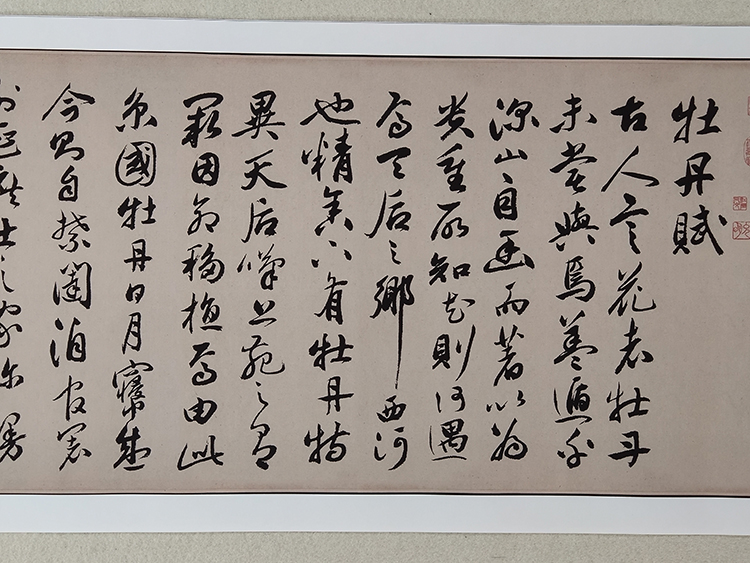 牡丹賦
古人言花者牡丹
未嘗與焉蓋遁乎
深山自幽而著以為
貴重所知花則何遇
焉天后之鄉西河
也精舍下有牡丹特
異天后嘆上苑之有
闕因命移植焉由此
京國牡丹日月寖盛
今則自禁闥洎官署
外延庶士之家